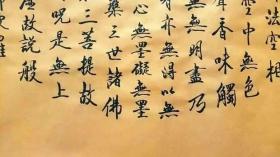 法空相
空中無色
聲香味觸
無無明盡乃
亦無得以無
心無罣礙無罣
槃三世諸佛
三菩提故
咒是無上
故說般
羅